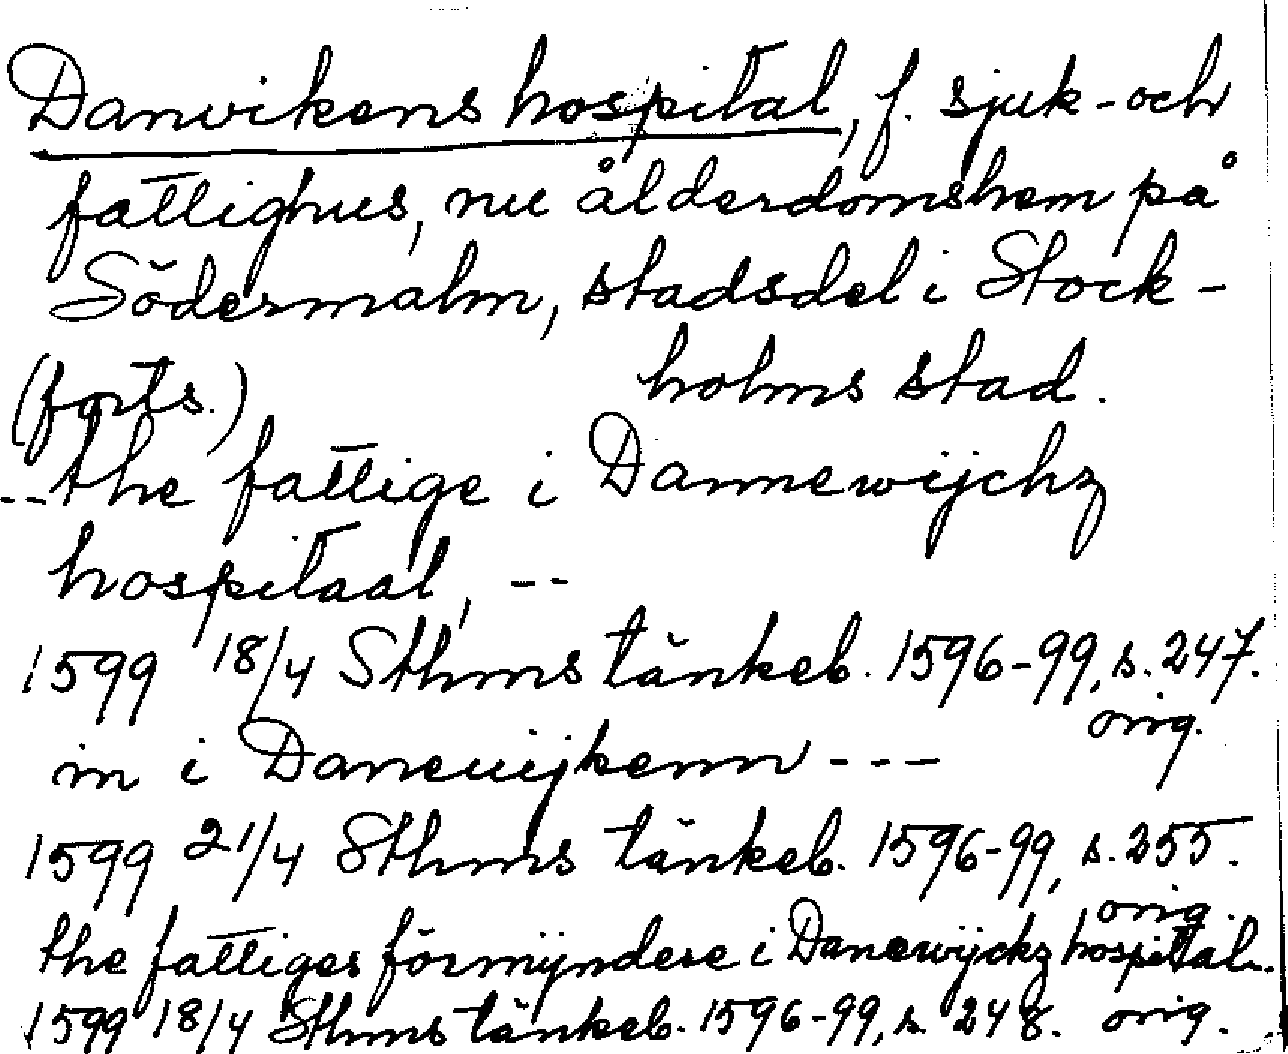 Danvikens hospital, f. sjuk- och
fattighus, nu ålderdomshem på
Södermalm, stadsdel i Stock-
holms stad.
(forts.)
-- the fattige i Dannewijchz
hospitaal, --
1599 18/4 Sthms tänkeb. 1596-99, s. 247.
orig.
in i Daneuijkenn ---
1599 21/4 Sthms tänkeb. 1596-99, s. 255.
orig.
the fattiges förmyndere i Danewijckz hospitaal.
1599 18/4 Sthms tänkeb. 1596-99, s. 248. orig.